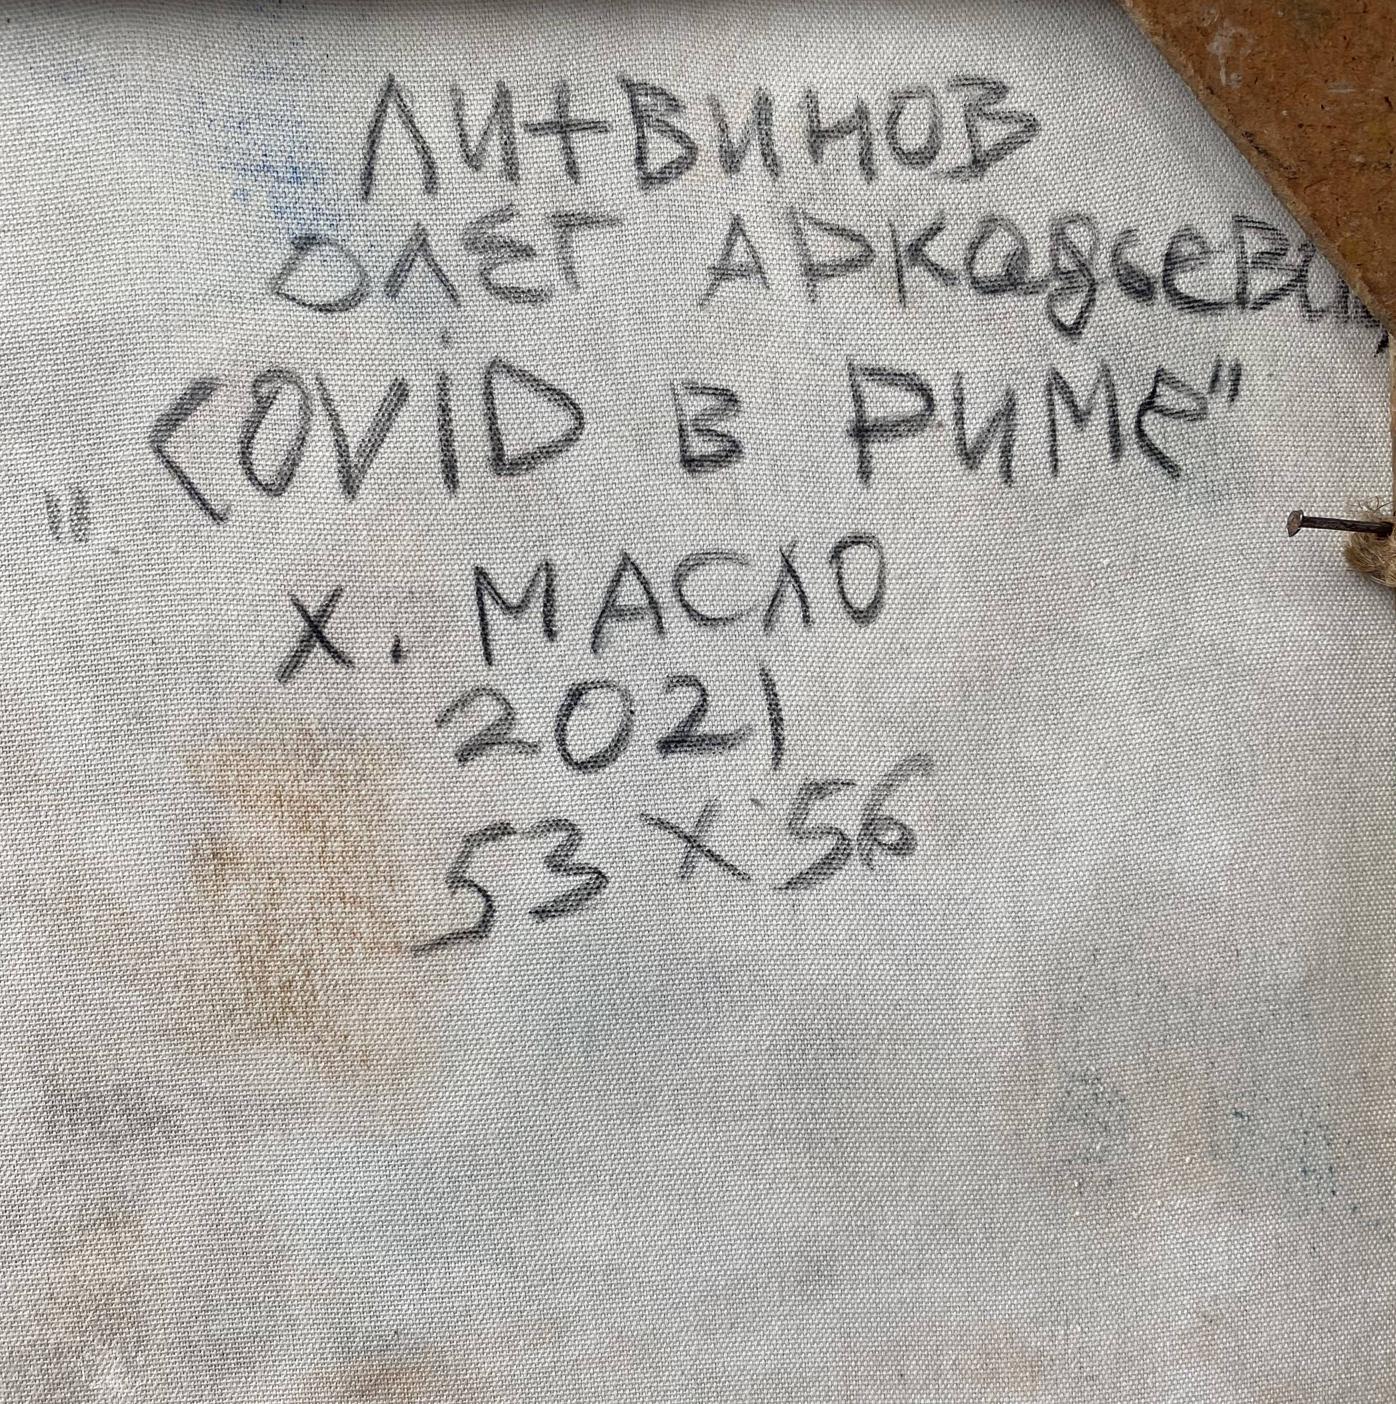 ЛИТВИНОВ
ОЛЕГ АРКадьевич
"COViD В РИМе"
Х. МАСЛО
2021
53 х 56